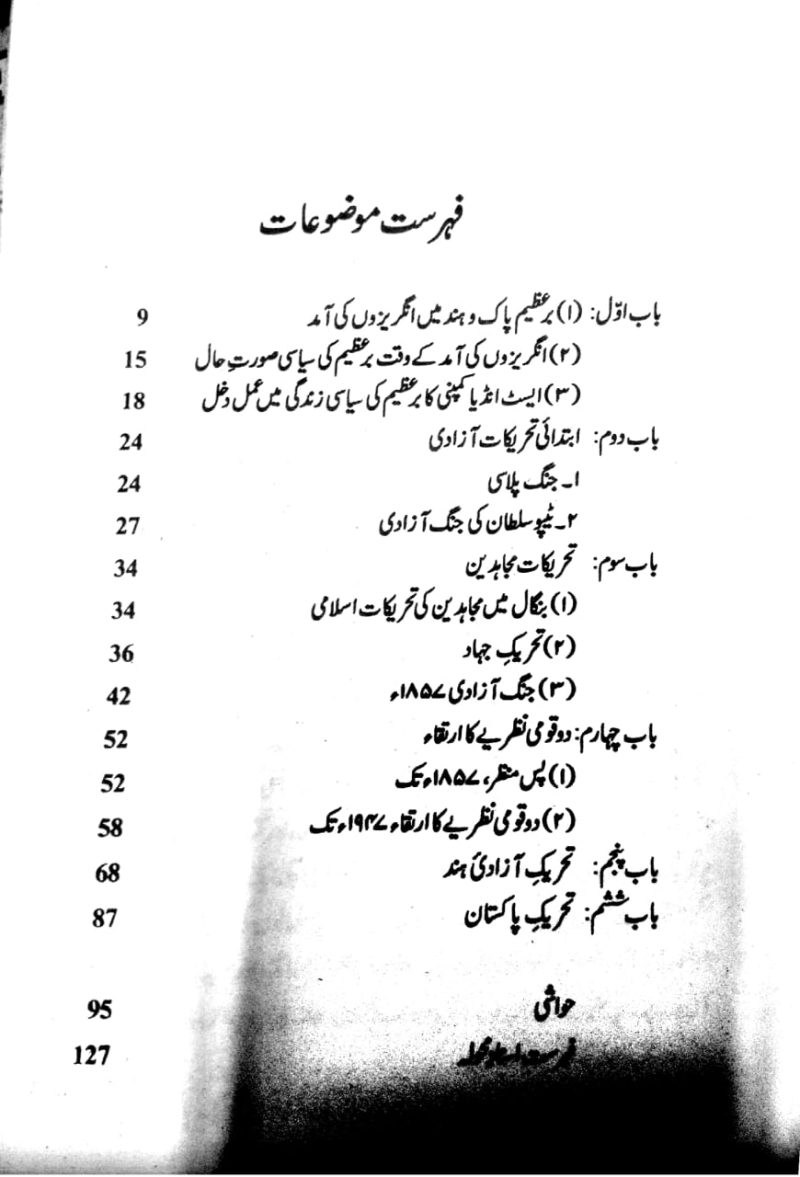 فہرست موضوعات
باب اوّل: (۱) برعظیم پاک و ہند میں انگریزوں کی آمد 9
(۲) انگریزوں کی آمد کے وقت برعظیم کی سیاسی صورتِ حال 15
(۳) ایسٹ انڈیا کمپنی کا برعظیم کی سیاسی زندگی میں عمل دخل 18
باب دوم: ابتدائی تحریکات آزادی 24
۱۔ جنگ پلاسی 24
۲۔ ٹیپو سلطان کی جنگ آزادی 27
باب سوم: تحریکات مجاہدین 34
(۱) بنگال میں مجاہدین کی تحریکات اسلامی 34
(۲) تحریکِ جہاد 36
(۳) جنگ آزادی ۱۸۵۷ء 42
باب چہارم: دو قومی نظریے کا ارتقاء 52
(۱) پس منظر، ۱۸۵۷ء تک 52
(۲) دو قومی نظریے کا ارتقاء ۱۹۴۷ء تک 58
باب پنجم: تحریکِ آزادیٔ ہند 68
باب ششم: تحریکِ پاکستان 87
حواشی 95
فہرست 127